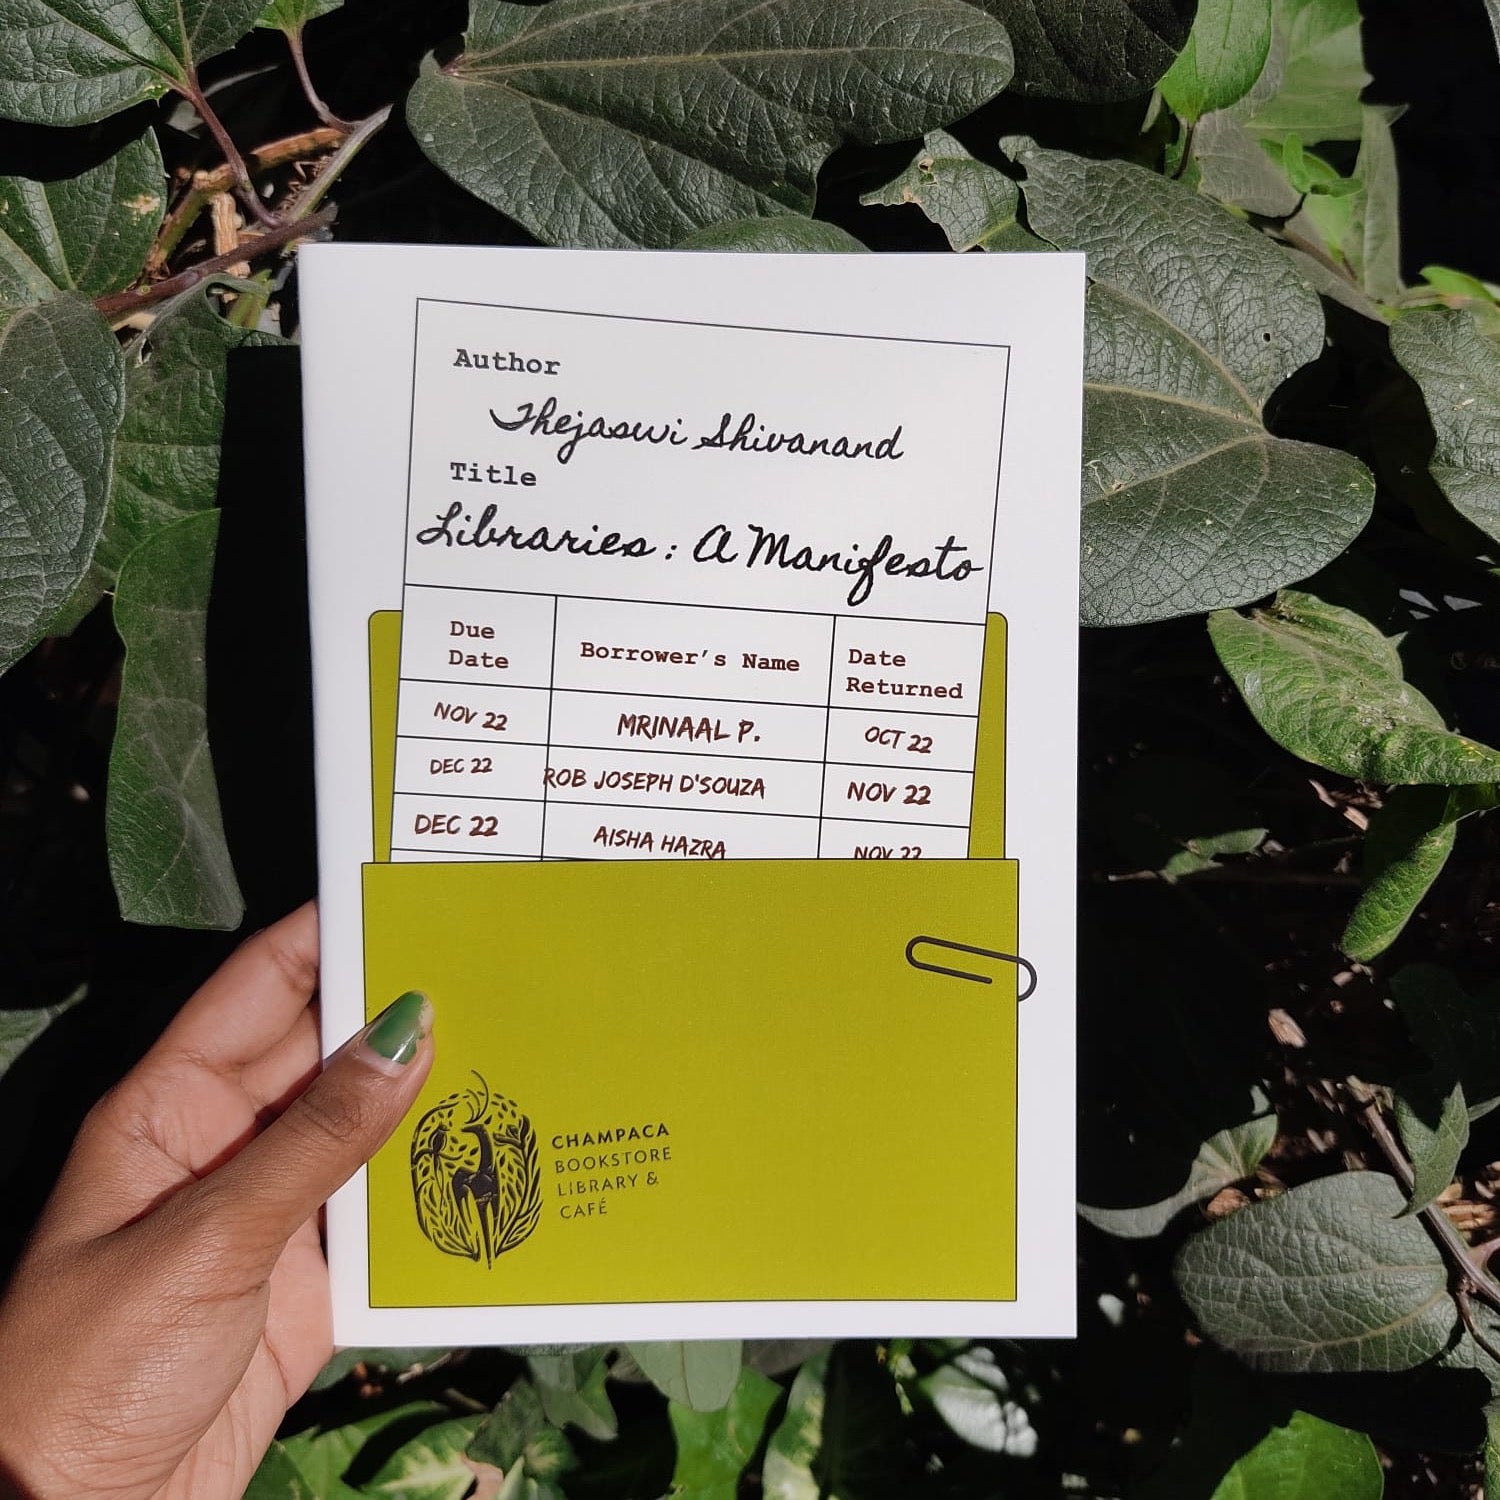 Author
Thejaswi Shivanand
Title
Libraries: A Manifesto
Due Date Borrower's Name Date Returned
NOV 22 MRINAAL P. OCT 22
DEC 22 ROB JOSEPH D'SOUZA NOV 22
DEC 22 AISHA HAZRA NOV 22
CHAMPACA
BOOKSTORE
LIBRARY &
CAFÉ